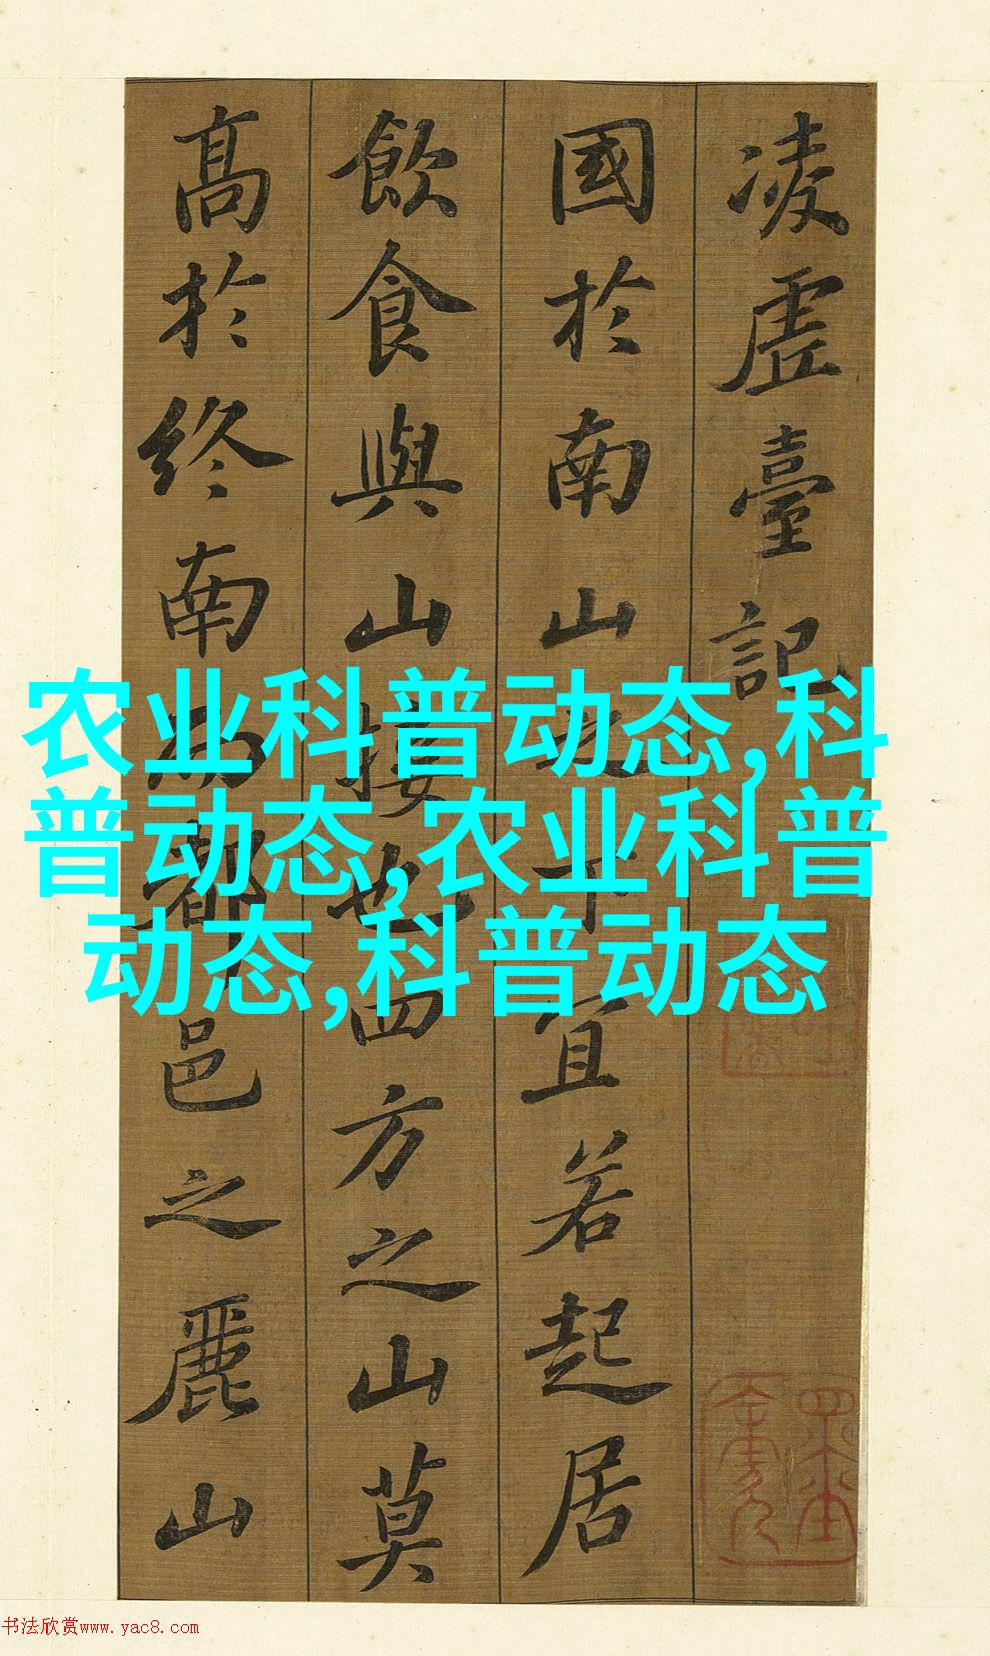 凌虛臺記
國於南山之下宜若起居
飲食與山接也四方之山莫
高於終南而都邑之麗山
农业科普动态,科
普动态,农业科普
动态,科普动态
书法欣赏www.yac8.com